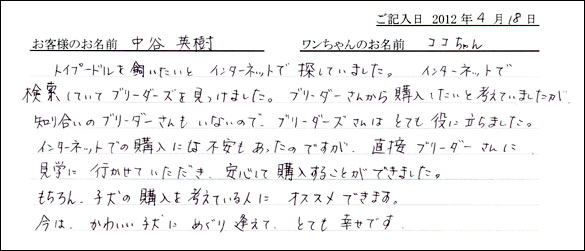 ご記入日 2012年4月18日
お客様のお名前 中谷 英樹 ワンちゃんのお名前 ココちゃん
トイプードルを飼いたいと インターネットで 探していました。 インターネットで
検索していて ブリーダーズを見つけました。 ブリーダーさんから購入したいと考えていましたが、
知り合いのブリーダーさんも いないので、ブリーダーズさんは とても 役に立ちました。
インターネットでの購入には不安もあったのですが、直接 ブリーダーさんに、
見学に 行かせていただき、安心して 購入することができました。
もちろん、子犬の 購入を考えている人に オススメ できます。
今は、かわいい子犬に めぐり逢えて、とても 幸せです。